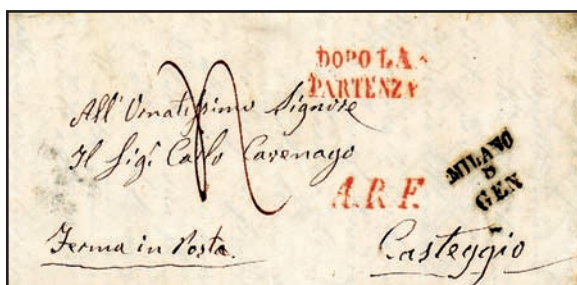 DOPO LA
PARTENZA
All' Ornatissimo Signore
Il Sigr Carlo Cavenago
A.R.F.
MILANO
8
GEN
Ferma in Posta.
Casteggio